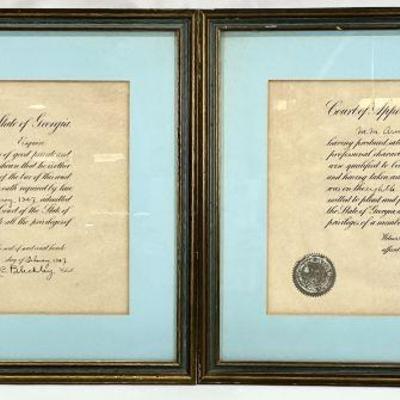 State of Georgia
Esquire
of good private and
shown that he is other
of the bar of this and
oath required by law
1907, admitted
Court of the State of
to all the privileges of
seal of said court hereto
day of February, 1907
C. Bleckley, Clerk
Court of Appe
M. M. Arno
having produced satis
professional characte
was qualified to be
and having taken and
was on the eighth
mitted to plead and p
the State of Georgia, a
privileges of a membe
Witness
affixed